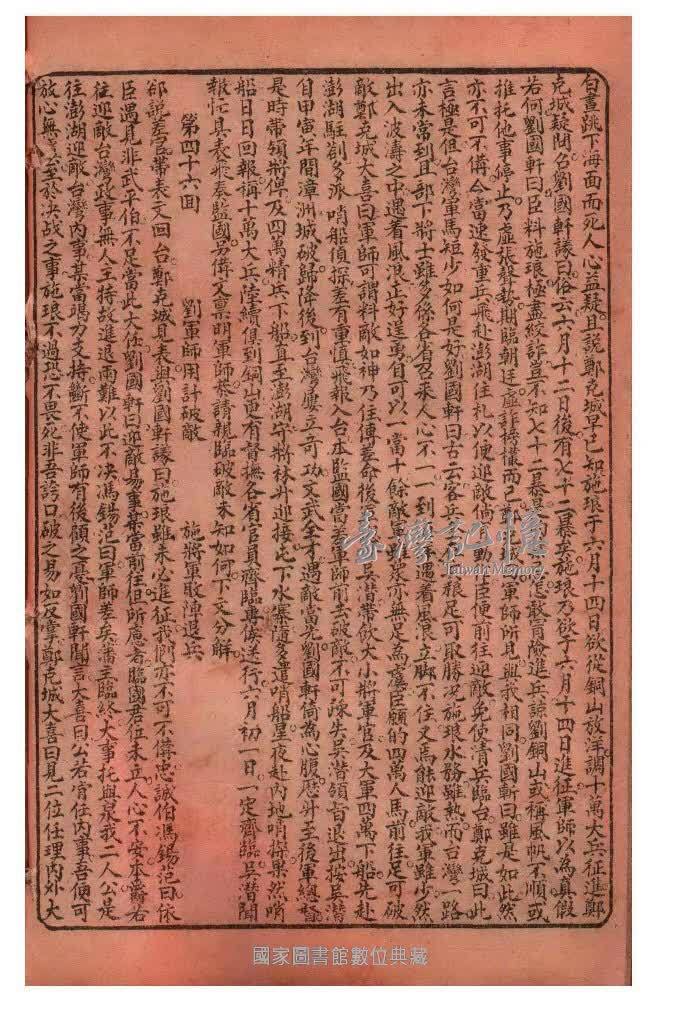 白晝跳下海面而死人心益疑且說鄭克城早已知施琅于六月十四日欲從銅山放洋調十萬大兵征進鄭
克城疑閉召劉國軒議曰俗云六月十二日後有七十二暴矣施琅乃欲于六月十四日進征軍師以為真假
若何劉國軒曰臣料施琅極盡絞詐豈不知七十二暴敢冒險進兵諒劉銅山或稱風帆不順或
推托他事停止乃虛張聲勢期臨朝廷虛詐搪攉而已鄭克軍師所見與我相同劉國軒曰雖是如此然
亦不可不備今當速發重兵飛赴澎湖住札以便迎敵倘動臣便前往迎敵免使清兵臨台鄭克城曰此
言極是但台灣軍馬短少如何是好劉國軒曰古云客兵糧足可取勝况施琅水務雖熟而台灣一路
亦未嘗到且部下將士雖多係各省及來人心不一一到遇着風浪立脚不住又焉能迎敵我軍雖少然
出入波濤之中遇着風浪正好逞勇自可以一當十餘敵軍雖眾亦無足為慮臣願的四萬人馬前往足可破
敵鄭克城大喜曰軍師可謂料敵如神乃任傳着命後吳潜帶欽大小將軍官及大軍四萬下船先赴
澎湖駐劄多派哨船偵探差有重慎飛報入台本監國當軍師前去破敵不可踈失吳潜領旨退出按吳潜
自甲寅年間漳洲城破歸降後到台灣屢立奇功文武全才遇敵當先劉國軒倚為心腹歷升至後軍總督
是時帶領將俾及四萬精兵下船直至澎湖守將林升迎接屯下水寨隨多遣哨船星夜赴內地哨探果然哨
船日日回報稱十萬大兵陸續俱到銅山更有督撫各省官員齊臨專俟送行六月初一日一定齊臨吳潜聞
報忙具表飛奏監國另備文稟明軍師恭請親臨破敵未知如何下文分解
第四十六回 劉軍師用計破敵 施將軍敗陣退兵
卻說差官帶表文回台鄭克城見表與劉國軒議曰施琅雖未必進征我們亦不可不備忠誠伯馮錫范曰依
臣遇見非武平伯不足當此大任劉國軒曰迎敵易事某當前往但所慮者臨國君位未立人心不安本爵若
往迎敵台灣政事無人主持故進退兩難以此不决馮錫范曰軍師差矣藩主臨終大事托與泉我二人公是
往澎湖迎敵台灣內事某當竭力支持斷不使軍師有後顧之憂劉國軒聞言大喜曰公若肯任內事吾便可
放心無至於决战之事施琅不過恐不畏死非吾誇口破之易如反掌鄭克城大喜曰見二位任理內外大
臺灣記憶
Taiwan Memory
國家圖書館數位典藏